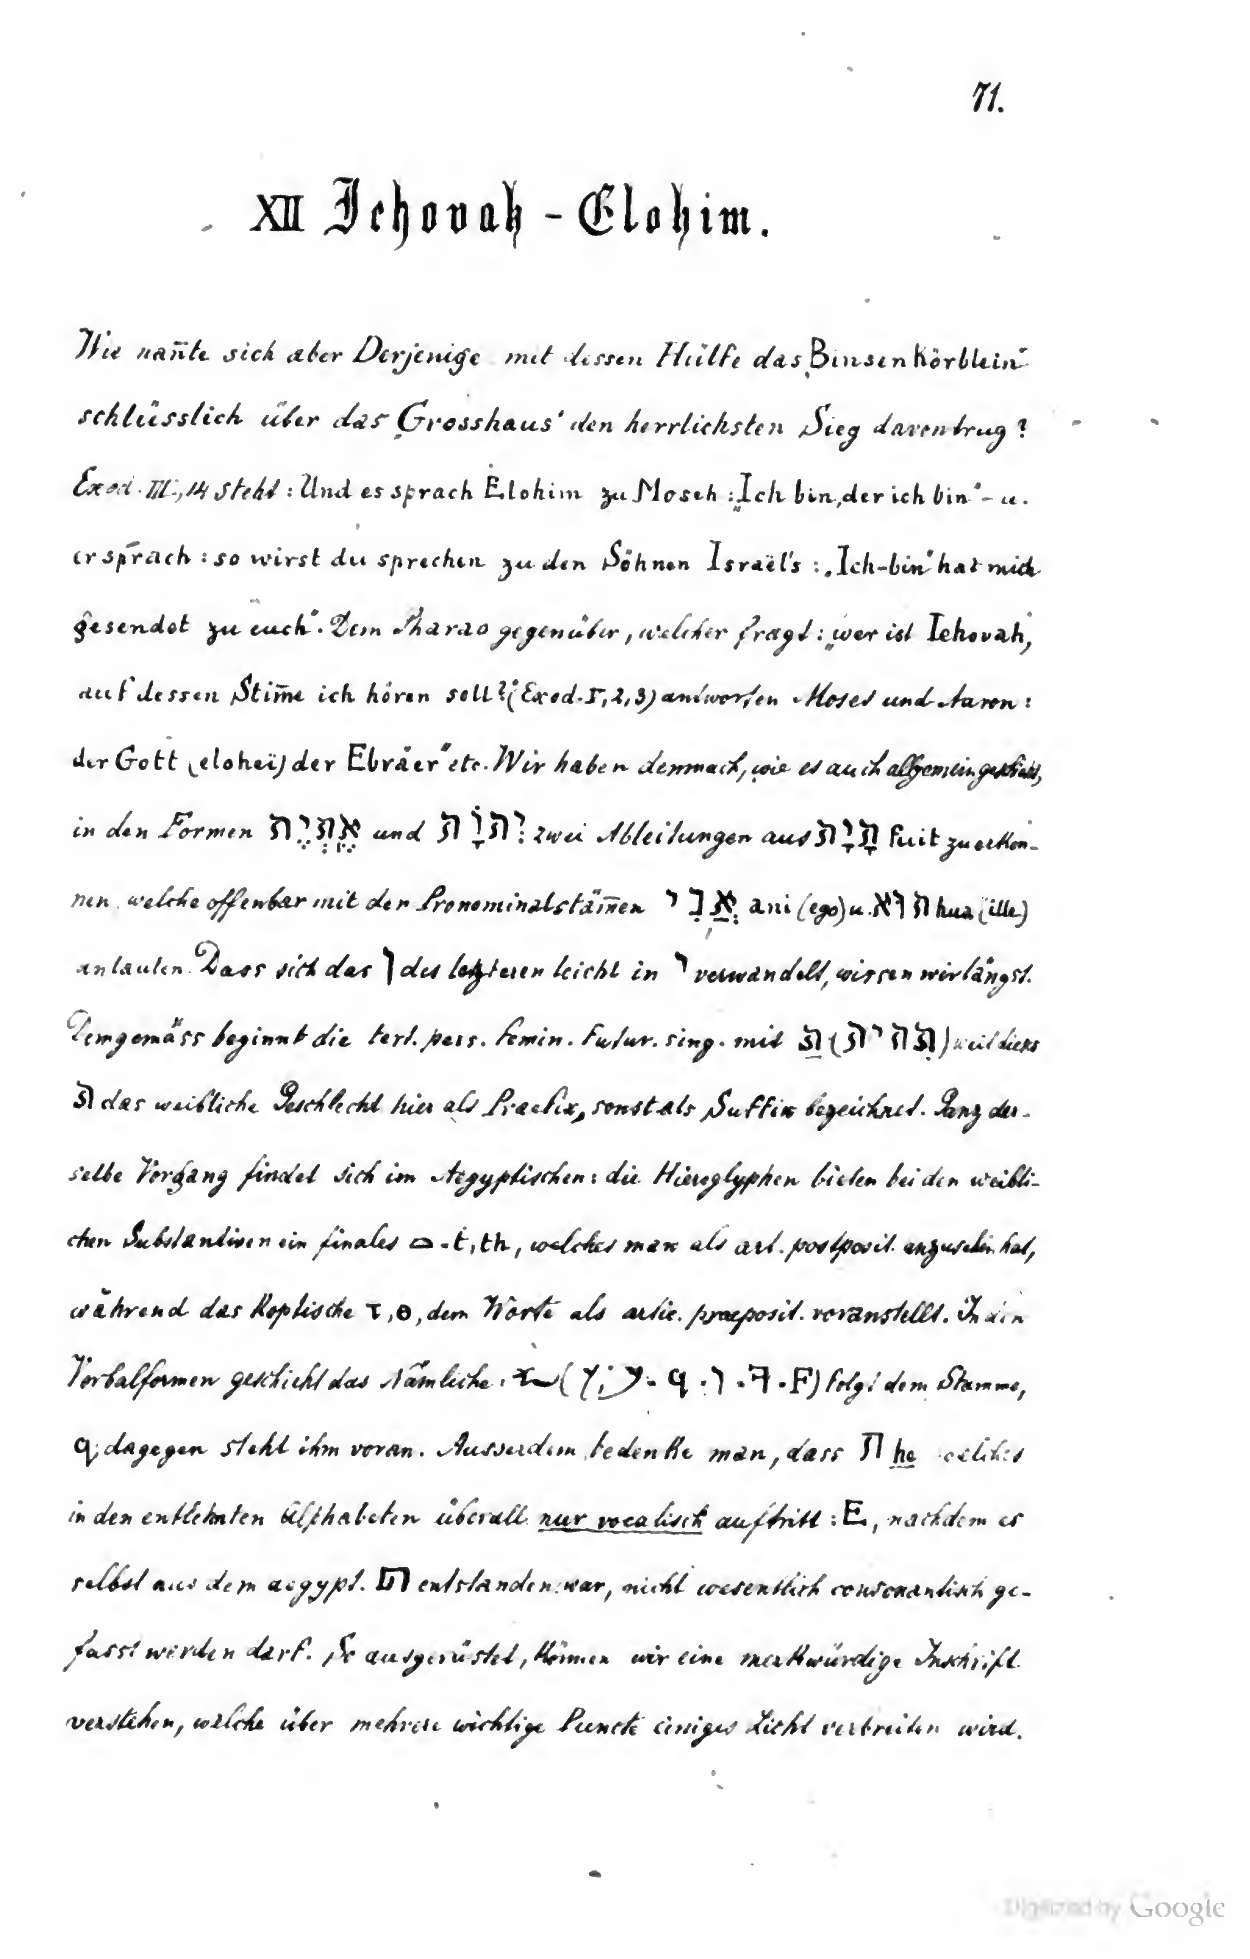 71.
XII Jehovah - Elohim.
Wie nan̄te sich aber Derjenige mit dessen Hülfe das „Binsenkörblein“
schlüsslich über das „Grosshaus“ den herrlichsten Sieg davontrug?
Exod. III, 14 steht: Und es sprach Elohim zu Moseh: „Ich bin, der ich bin“ - u.
er sprach: so wirst du sprechen zu den Söhnen Israël's: „Ich-bin“ hat mich
gesendet zu euch“. Dem Pharao gegenüber, welcher fragt: „wer ist Iehovah,
auf dessen Stim̄e ich hören soll?“ (Exod. V, 2, 3) antworten Moses und Aaron:
der Gott (elohei) der Ebräer“ etc. Wir haben demnach, wie es auch allgemein geschieht,
in den Formen אֶהְיֶה und יְהוָֹה zwei Ableitungen aus הָיָה fuit zu erken-
nen, welche offenbar mit den Pronominalstäm̄en אֲנִי ani (ego) u. הוא hua (ille)
anlauten. Dass sich das ו des letzteren leicht in י verwandelt, wissen wir längst.
Demgemäss beginnt die tert. pers. femin. futur. sing. mit ת (תִהיה) weil dieses
ת das weibliche Geschlecht hier als Praefix, sonst als Suffix bezeichnet. Ganz der-
selbe Vorgang findet sich im Aegyptischen: die Hieroglyphen bieten bei den weibli-
chen Substantiven ein finales 𓏏 - t, th, welches man als art. postposit. anzusehen hat,
während das Koptische ⲧ, ⲑ, dem Worte als artic. praeposit. voranstellt. In den
Verbalformen geschieht das Nämliche: 𓆑 ( - ϥ - ו - F) folgt dem Stamme,
ϥ dagegen steht ihm voran. Ausserdem bedenke man, dass ה he welches
in den entlehnten Alphabeten überall nur vocalisch auftritt: E, nachdem es
selbst aus dem aegypt. 𓉔 entstanden war, nicht wesentlich consonantisch ge-
fasst werden darf. So ausgerüstet, können wir eine merkwürdige Inschrift
verstehen, welche über mehrere wichtige Puncte einiges Licht verbreiten wird.
Digitized by Google